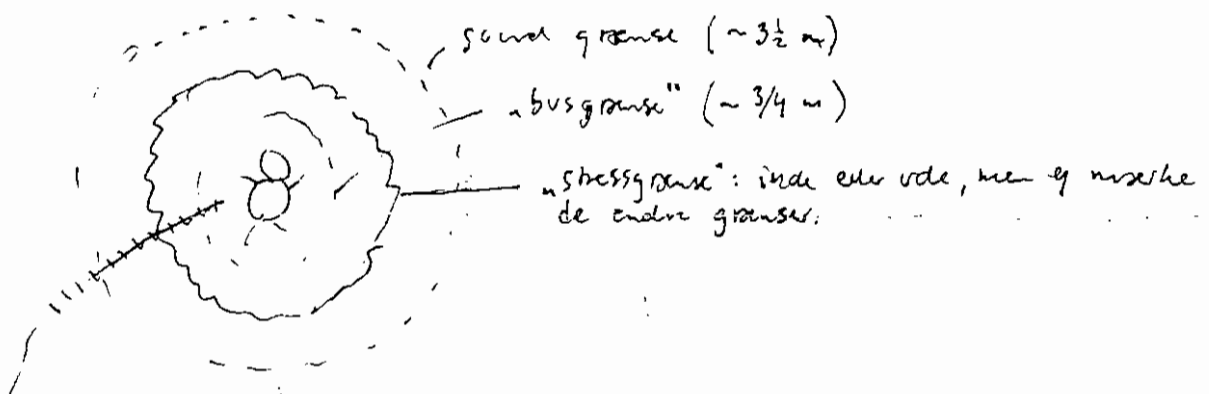 sund grænse (~ 3½ m)
"busgrænse" (~ 3/4 m)
"stressgrænse": inde eller ude, men ej mærke
de andre grænser.